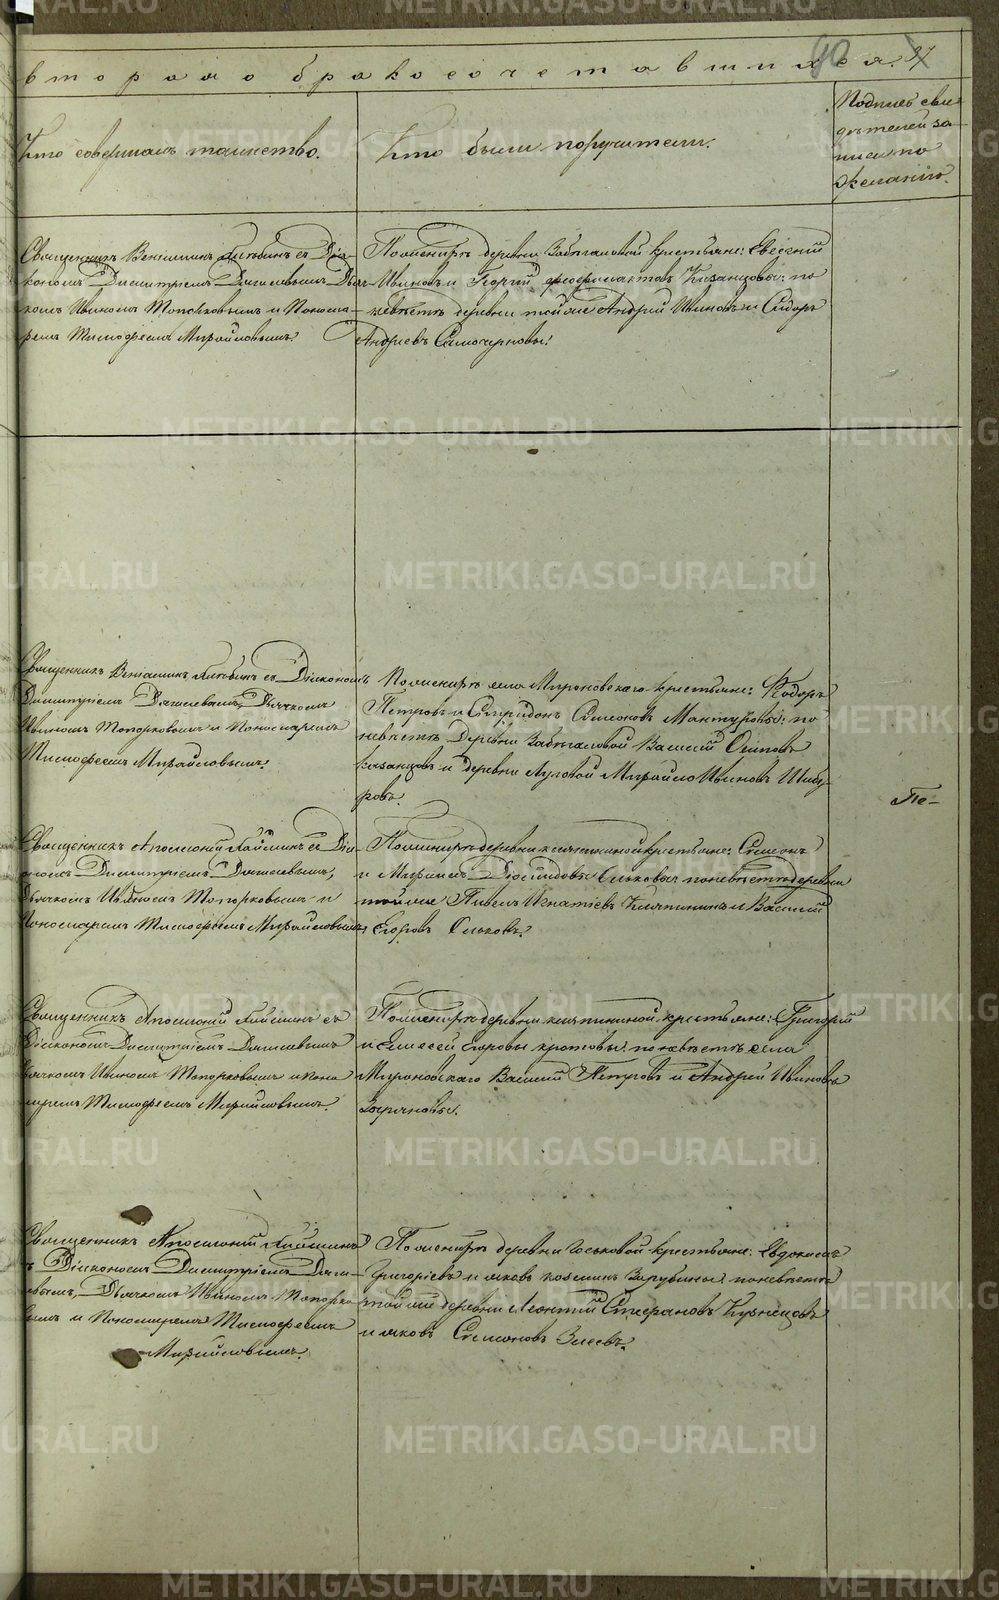 METRIKI.GASO-URAL.RU
40 37
втораго бракосочетавшихся.
Кто совершалъ таинство.
Кто были поручители.
Подпись сви-
дѣтелей за-
писи по
желанію.
Священникъ Веніаминъ съ Діа-
кономъ Димитріемъ Дягилевымъ Дья-
комъ Иваномъ Топорковымъ и Понома-
ремъ Тимофеемъ Михайловымъ
По женихѣ деревни крестьяне: Евгений
Ивановъ и Георгий Казанцовы: по
невѣстѣ деревни той же Андрей Ивановъ и Сидоръ
Андреевъ
Священникъ Веніаминъ съ Діякономъ
Димитріемъ Дягилевымъ, Дьячкомъ
Иваномъ Топорковымъ и Пономаремъ
Тимофеемъ Михайловымъ.
По женихѣ села Мироновскаго крестьяне: Ѳедоръ
Петровъ и Спиридонъ Семеновъ Мантуровы: по
невѣстѣ Деревни Василий Осиповъ
Казанцовъ и деревни Луговой Михайло Ивановъ
ровъ.
Те-
Священникъ Аполлоній съ Діа-
кономъ Димитріемъ Дягилевымъ,
Дьячкомъ Иваномъ Топорковымъ и
Пономаремъ Тимофеемъ Михайловымъ,
По женихѣ деревни крестьяне: Семенъ
и Ольковы по невѣстѣ деревни
той же Павелъ Игнатіевъ и Василий
Егоровъ Ольковъ.
Священникъ Аполлоній съ
Діякономъ Димитріемъ Дягилевымъ
Дьячкомъ Иваномъ Топорковымъ и Поно-
маремъ Тимофеемъ Михайловымъ.
По женихѣ деревни крестьяне: Григорий
и Елисей Егоровы по невѣстѣ села
Мироновскаго Василий Петровъ и Андрей Ивановъ
Священникъ Аполлоній
съ Діякономъ Димитріемъ Дяги-
левымъ, Дьячкомъ Иваномъ Топорко-
вымъ и Пономаремъ Тимофеемъ
Михайловымъ.
По женихѣ деревни крестьяне: Евдокимъ
Григоріевъ и Яковъ Козминъ Зарубины: по невѣстѣ
той же деревни Леонтий Стефановъ Кузнецовъ
и Яковъ Семеновъ